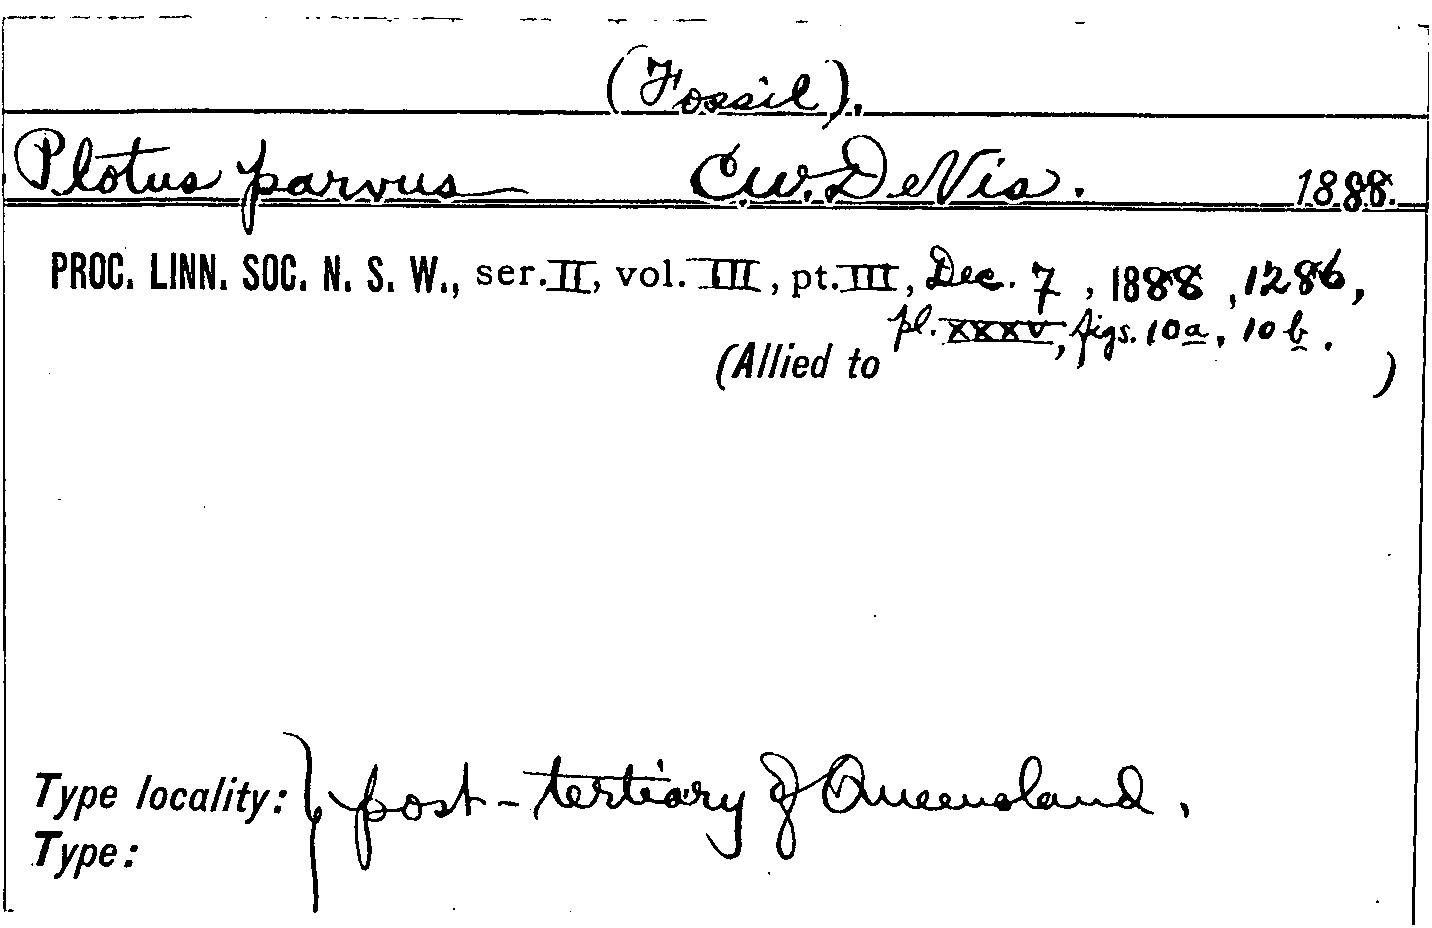 (Fossil).
Plotus parvus C.W. DeVis. 1888.
PROC. LINN. SOC. N. S. W., ser. II, vol. III, pt. III, Dec. 7, 1888, 1286,
pl. XXXV, figs. 10a, 10b.
(Allied to )
Type locality: } post-tertiary of Queensland.
Type: